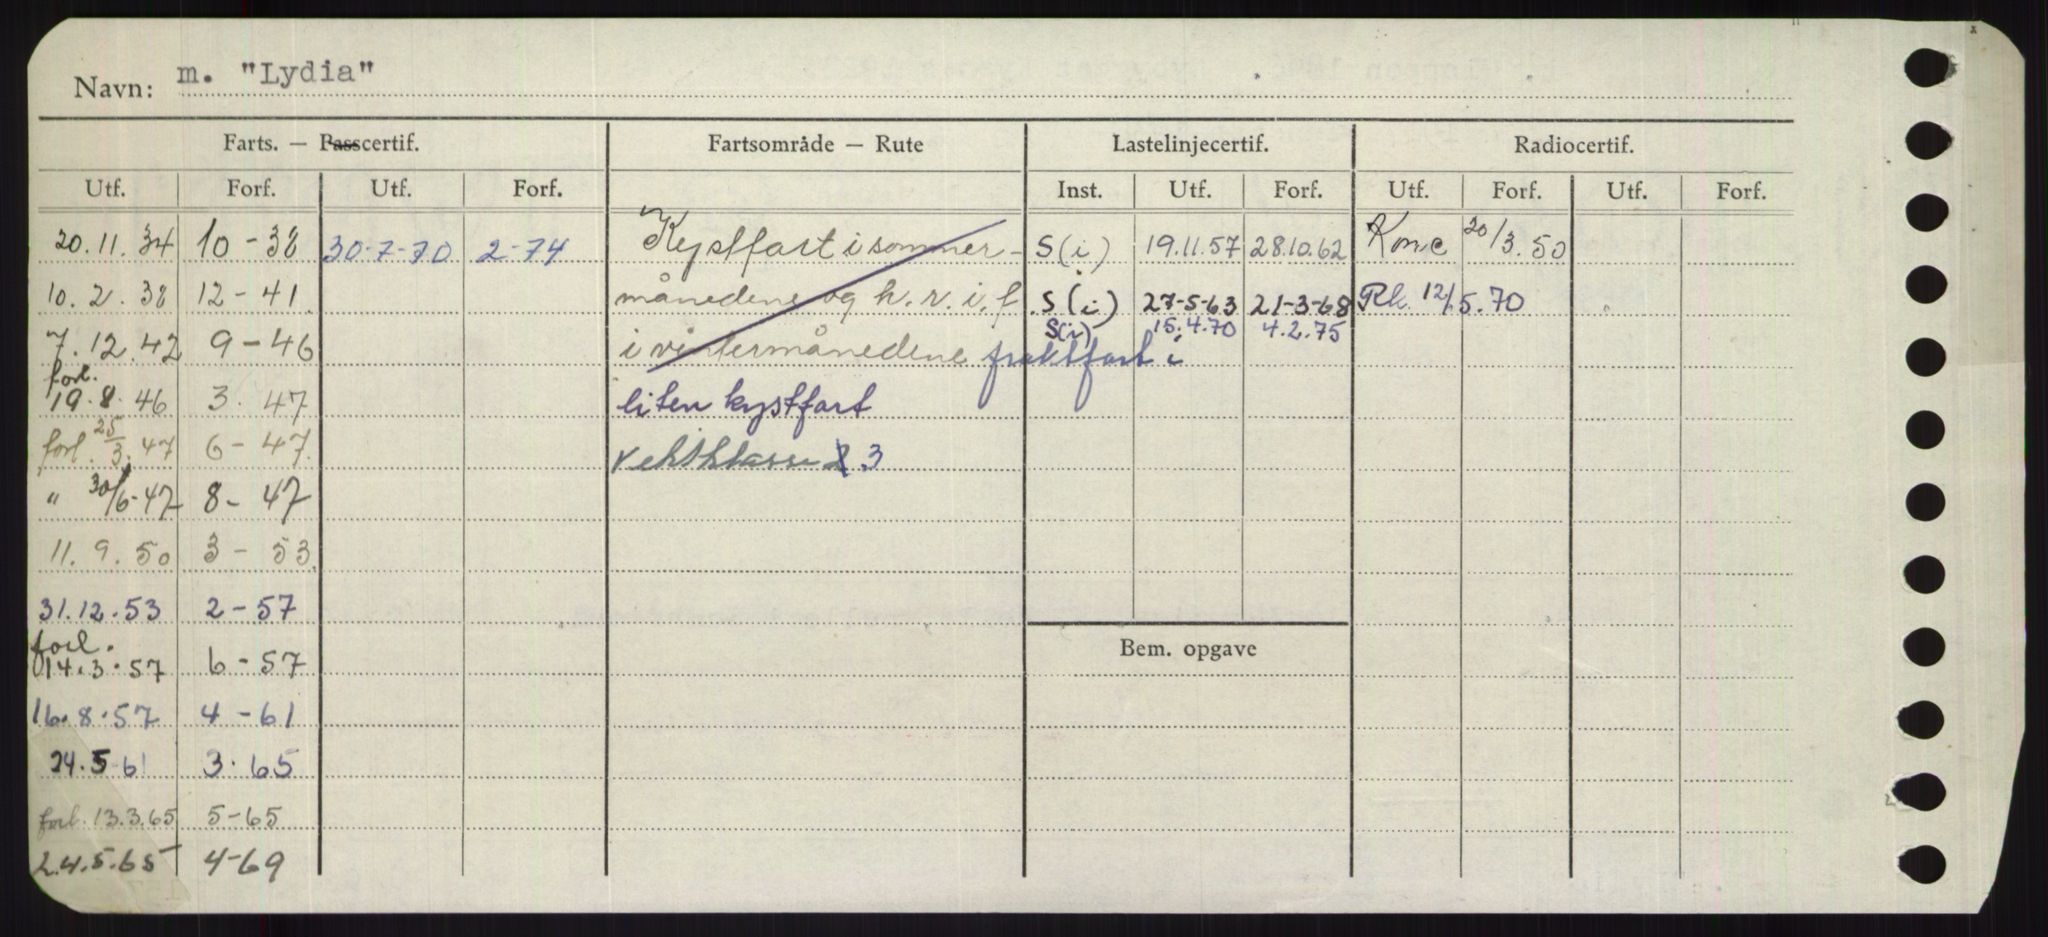 Navn: m. "Lydia"
Farts. — Passcertif. Fartsområde — Rute Lastelinjecertif. Radiocertif.
Utf. Forf. Utf. Forf. Inst. Utf. Forf. Utf. Forf. Utf. Forf.
20.11.34 10-38 30-7-70 2-74 Kystfart i sommer- S(i) 19.11.57 28.10.62 Konc 20/3.50
10.2.38 12-41 månedene og h.r.i.f. S(i) 27-5-63 21-3-68 Rk. 12/5.70
S(i) 15.4.70 4.2.75
7.12.42 9-46 i vintermånedene fraktfart i
forl.
19.8.46 3.47 liten kystfart
forl. 25/3.47 6-47 Vektklasse 2 3
" 30/6-47 8-47
11.9.50 3-53
31.12.53 2-57
forl.
14.3.57 6-57
Bem. opgave
16.8.57 4-61
24.5-61 3.65
forl. 13.3.65 5-65
24.5.65 4-69